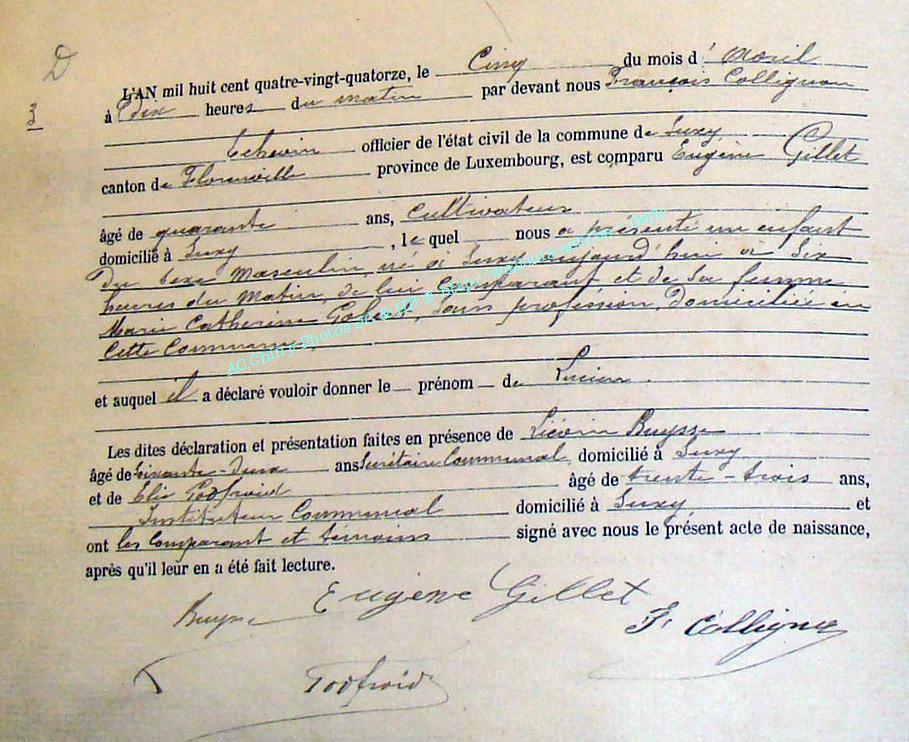 D
3
L'AN mil huit cent quatre-vingt-quatorze, le Cinq du mois d'Avril
à Dix heures du matin par devant nous François Collignon
Echevin officier de l'état civil de la commune de Suxy
canton de Florenville province de Luxembourg, est comparu Eugène Gillet
âgé de quarante ans, Cultivateur
domicilié à Suxy, lequel nous a présenté un enfant
du sexe Masculin, né à Suxy aujourd'hui à Six
heures du Matin, de lui Comparant, et de Sa femme
Marie Catherine, Sans profession, Domiciliée en
Cette Commune,
et auquel il a déclaré vouloir donner le prénom de Lucien.
Les dites déclaration et présentation faites en présence de Liévin Buysse
âgé de Soixante-Deux ans Secrétaire Communal, domicilié à Suxy
et de Elie Godfroid âgé de trente-trois ans,
Instituteur Communal domicilié à Suxy et
ont les Comparant et témoins signé avec nous le présent acte de naissance,
après qu'il leur en a été fait lecture.
Buysse Eugène Gillet
F. Collignon
Godfroid